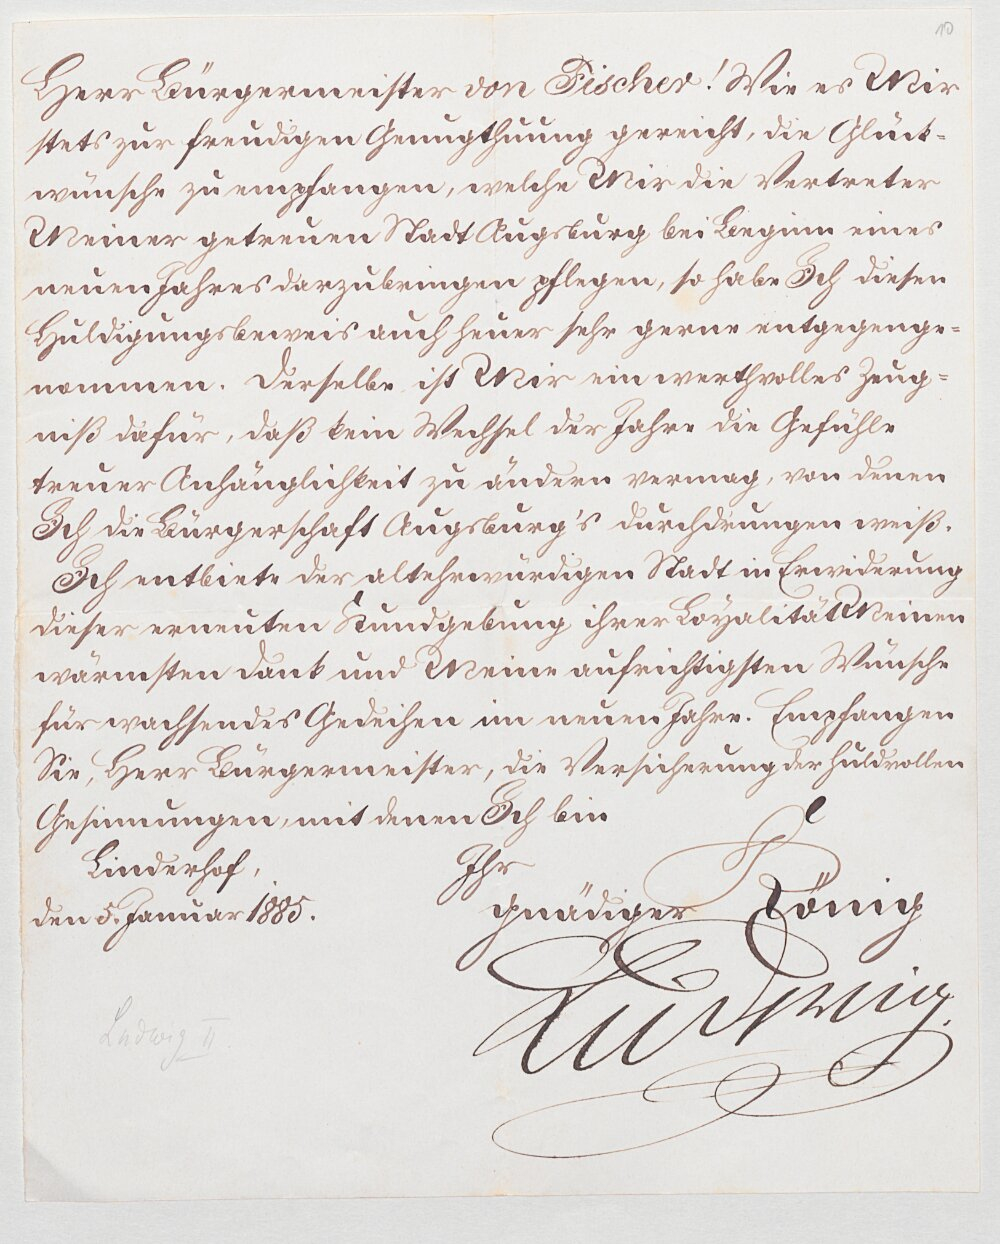 10
Herr Bürgermeister von Fischer! Wie es Mir
stets zur freudigen Genugthuung gereicht, die Glück-
wünsche zu empfangen, welche Mir die Vertreter
Meiner getreuen Stadt Augsburg bei Beginn eines
neuen Jahres darzubringen pflegen, so habe Ich diesen
Huldigungsbeweis auch heuer sehr gerne entgegenge-
nommen. Derselbe ist Mir ein werthvolles Zeug-
niß dafür, daß kein Wechsel der Jahre die Gefühle
treuer Anhänglichkeit zu ändern vermag, von denen
Ich die Bürgerschaft Augsburg's durchdrungen weiß.
Ich entbiete der altehrwürdigen Stadt in Erwiderung
dieser erneuten Kundgebung ihrer Loyalität Meinen
wärmsten Dank und Meine aufrichtigsten Wünsche
für wachsendes Gedeihen im neuen Jahre. Empfangen
Sie, Herr Bürgermeister, die Versicherung der huldvollen
Gesinnungen, mit denen Ich bin
Linderhof, Ihr
den 5. Januar 1885. gnädiger König
Ludwig.
Ludwig II